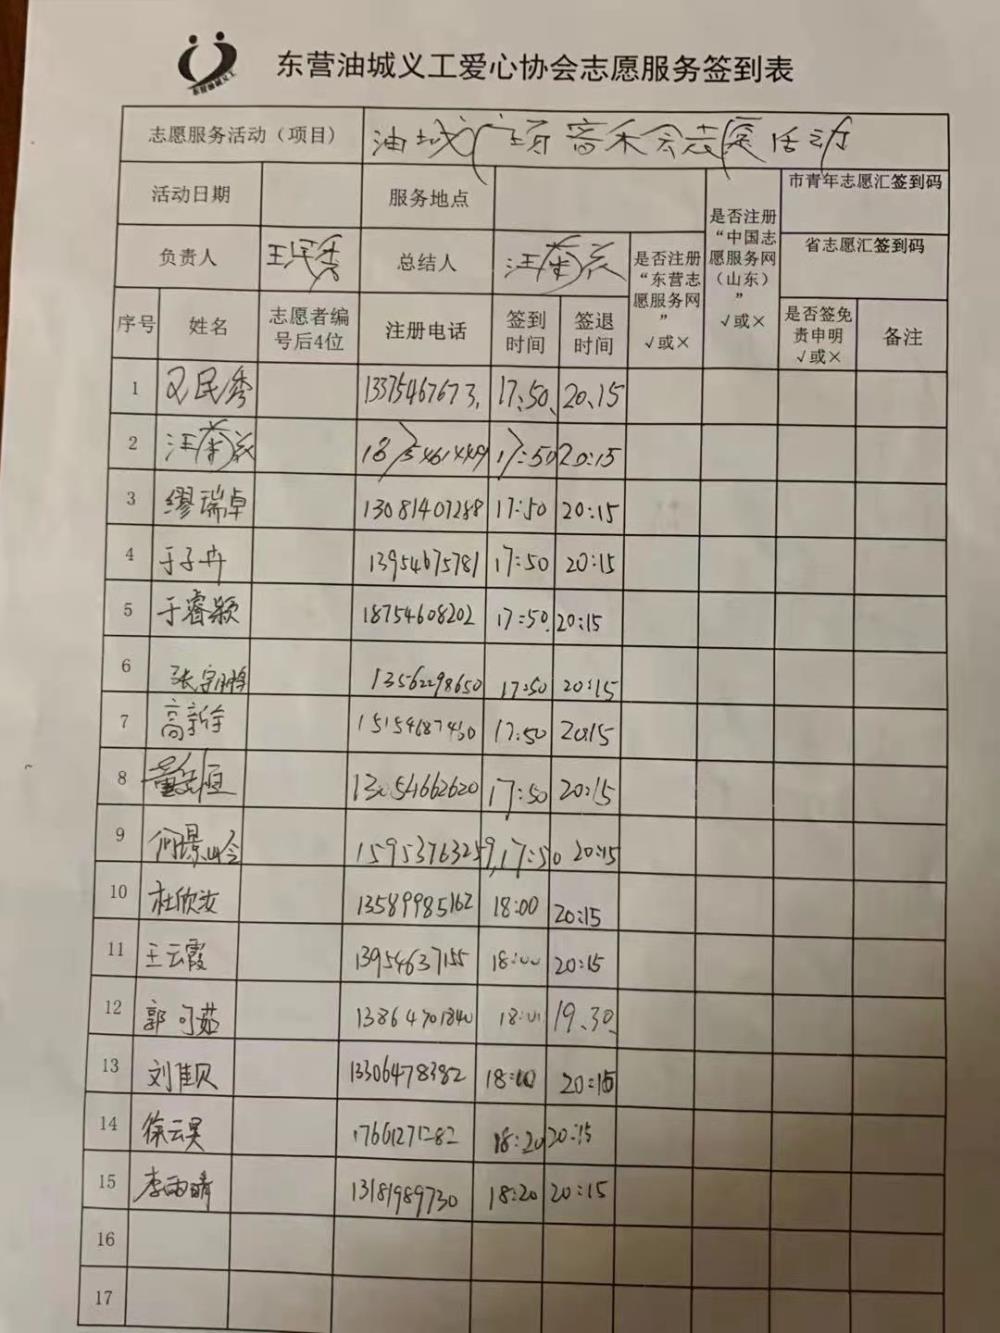 东营油城义工
东营油城义工爱心协会志愿服务签到表
志愿服务活动（项目） 油城广场音乐会志愿活动
活动日期 服务地点 是否注册“中国志愿服务网（山东）” √或× 市青年志愿汇签到码
负责人 王民秀 总结人 是否注册“东营志愿服务网” √或× 省志愿汇签到码
序号 姓名 志愿者编号后4位 注册电话 签到时间 签退时间 是否签免责申明 √或× 备注
1 王民秀 13375467673. 17.50. 20.15
2 17:50 20:15
3 缪瑞卓 13081407288 17:50 20:15
4 于子冉 13954675781 17:50 20:15
5 于睿颖 18754608202 17:50. 20:15
6 13562298650 17:50 20:15
7 15154687430 17:50 20:15
8 13054662620 17:50 20:15
9 15953763259, 17:50 20:15
10 杜欣汝 13589985162 18:00 20:15
11 王云霞 13954637155 18:00 20:15
12 郭可茹 13864701840 18:00 19.30.
13 刘佳贝 13306478382 18:00 20:15
14 徐云昊 17661271282 18:20 20:15
15 李雨晴 13181989730 18:20 20:15
16
17